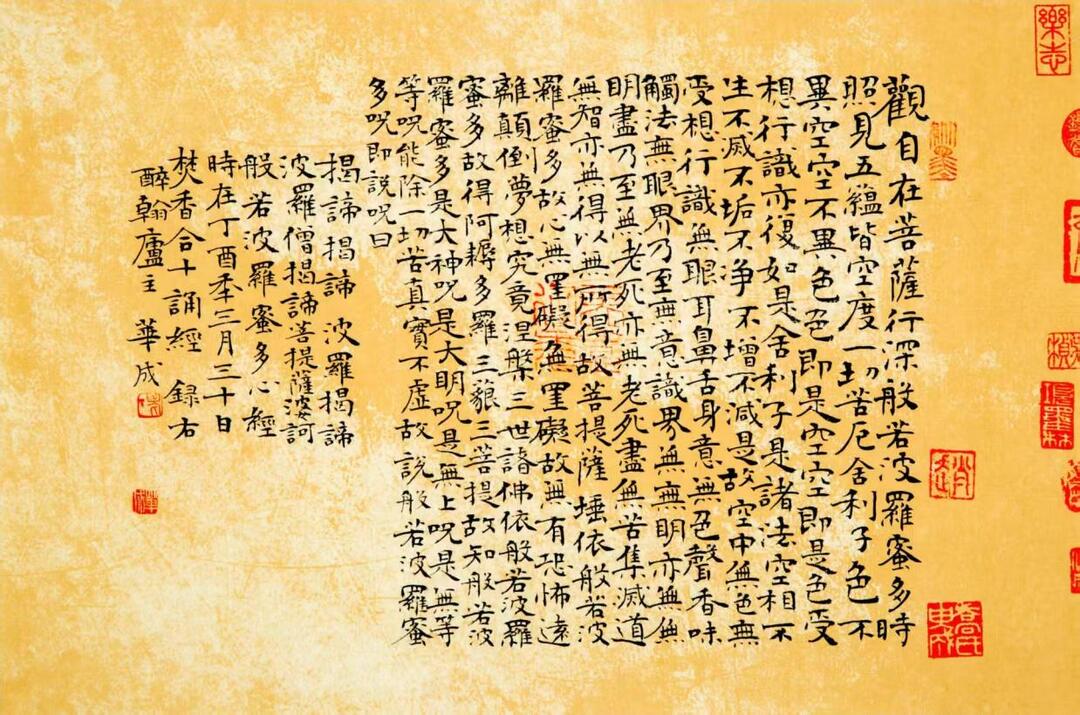 樂志
觀自在菩薩行深般若波羅蜜多時
照見五蘊皆空度一切苦厄舍利子色不
異空空不異色色即是空空即是色受
想行識亦復如是舍利子是諸法空相不
生不滅不垢不净不增不減是故空中無色無
受想行識無眼耳鼻舌身意無色聲香味
觸法無眼界乃至無意識界無無明亦無無
明盡乃至無老死亦無老死盡無苦集滅道
無智亦無得以無所得故菩提薩埵依般若波
羅蜜多故心無罣礙無罣礙故無有恐怖遠
離顛倒夢想究竟涅槃三世諸佛依般若波羅
蜜多故得阿耨多羅三藐三菩提故知般若波
羅蜜多是大神呪是大明呪是無上呪是無等
等呪能除一切苦真實不虛故說般若波羅蜜
多呪即說呪曰
揭諦揭諦 波羅揭諦
波羅僧揭諦菩提薩婆訶
般若波羅蜜多心經
時在丁酉秊三月三十日
焚香合十誦經 録右
醉翰廬主 華成